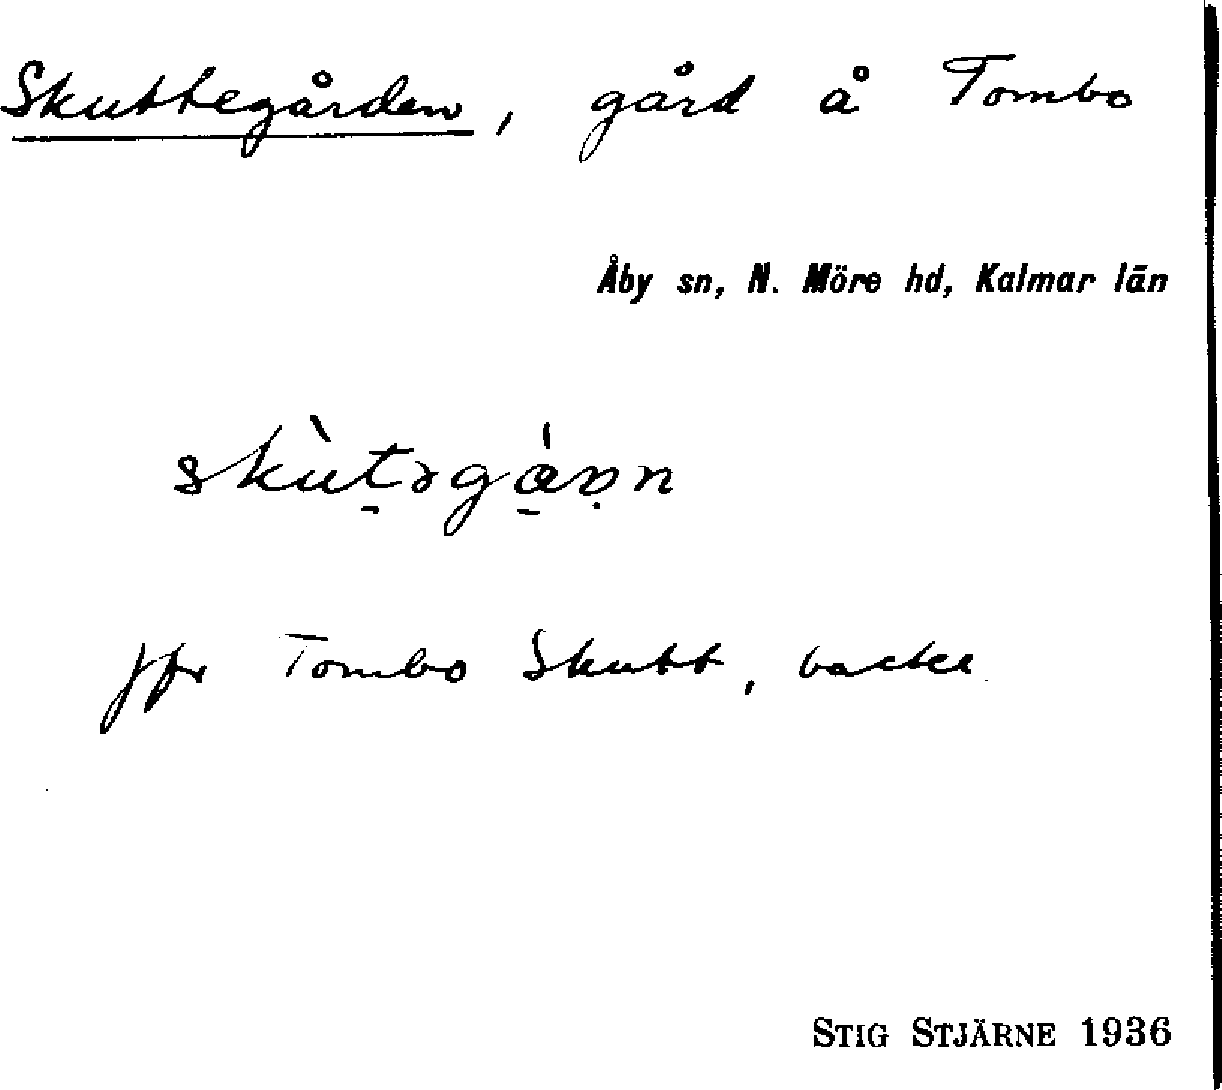 Skuttegården, gård å Tombo
Åby sn, N. Möre hd, Kalmar län
jfr Tombo Skutt, backe
STIG STJÄRNE 1936